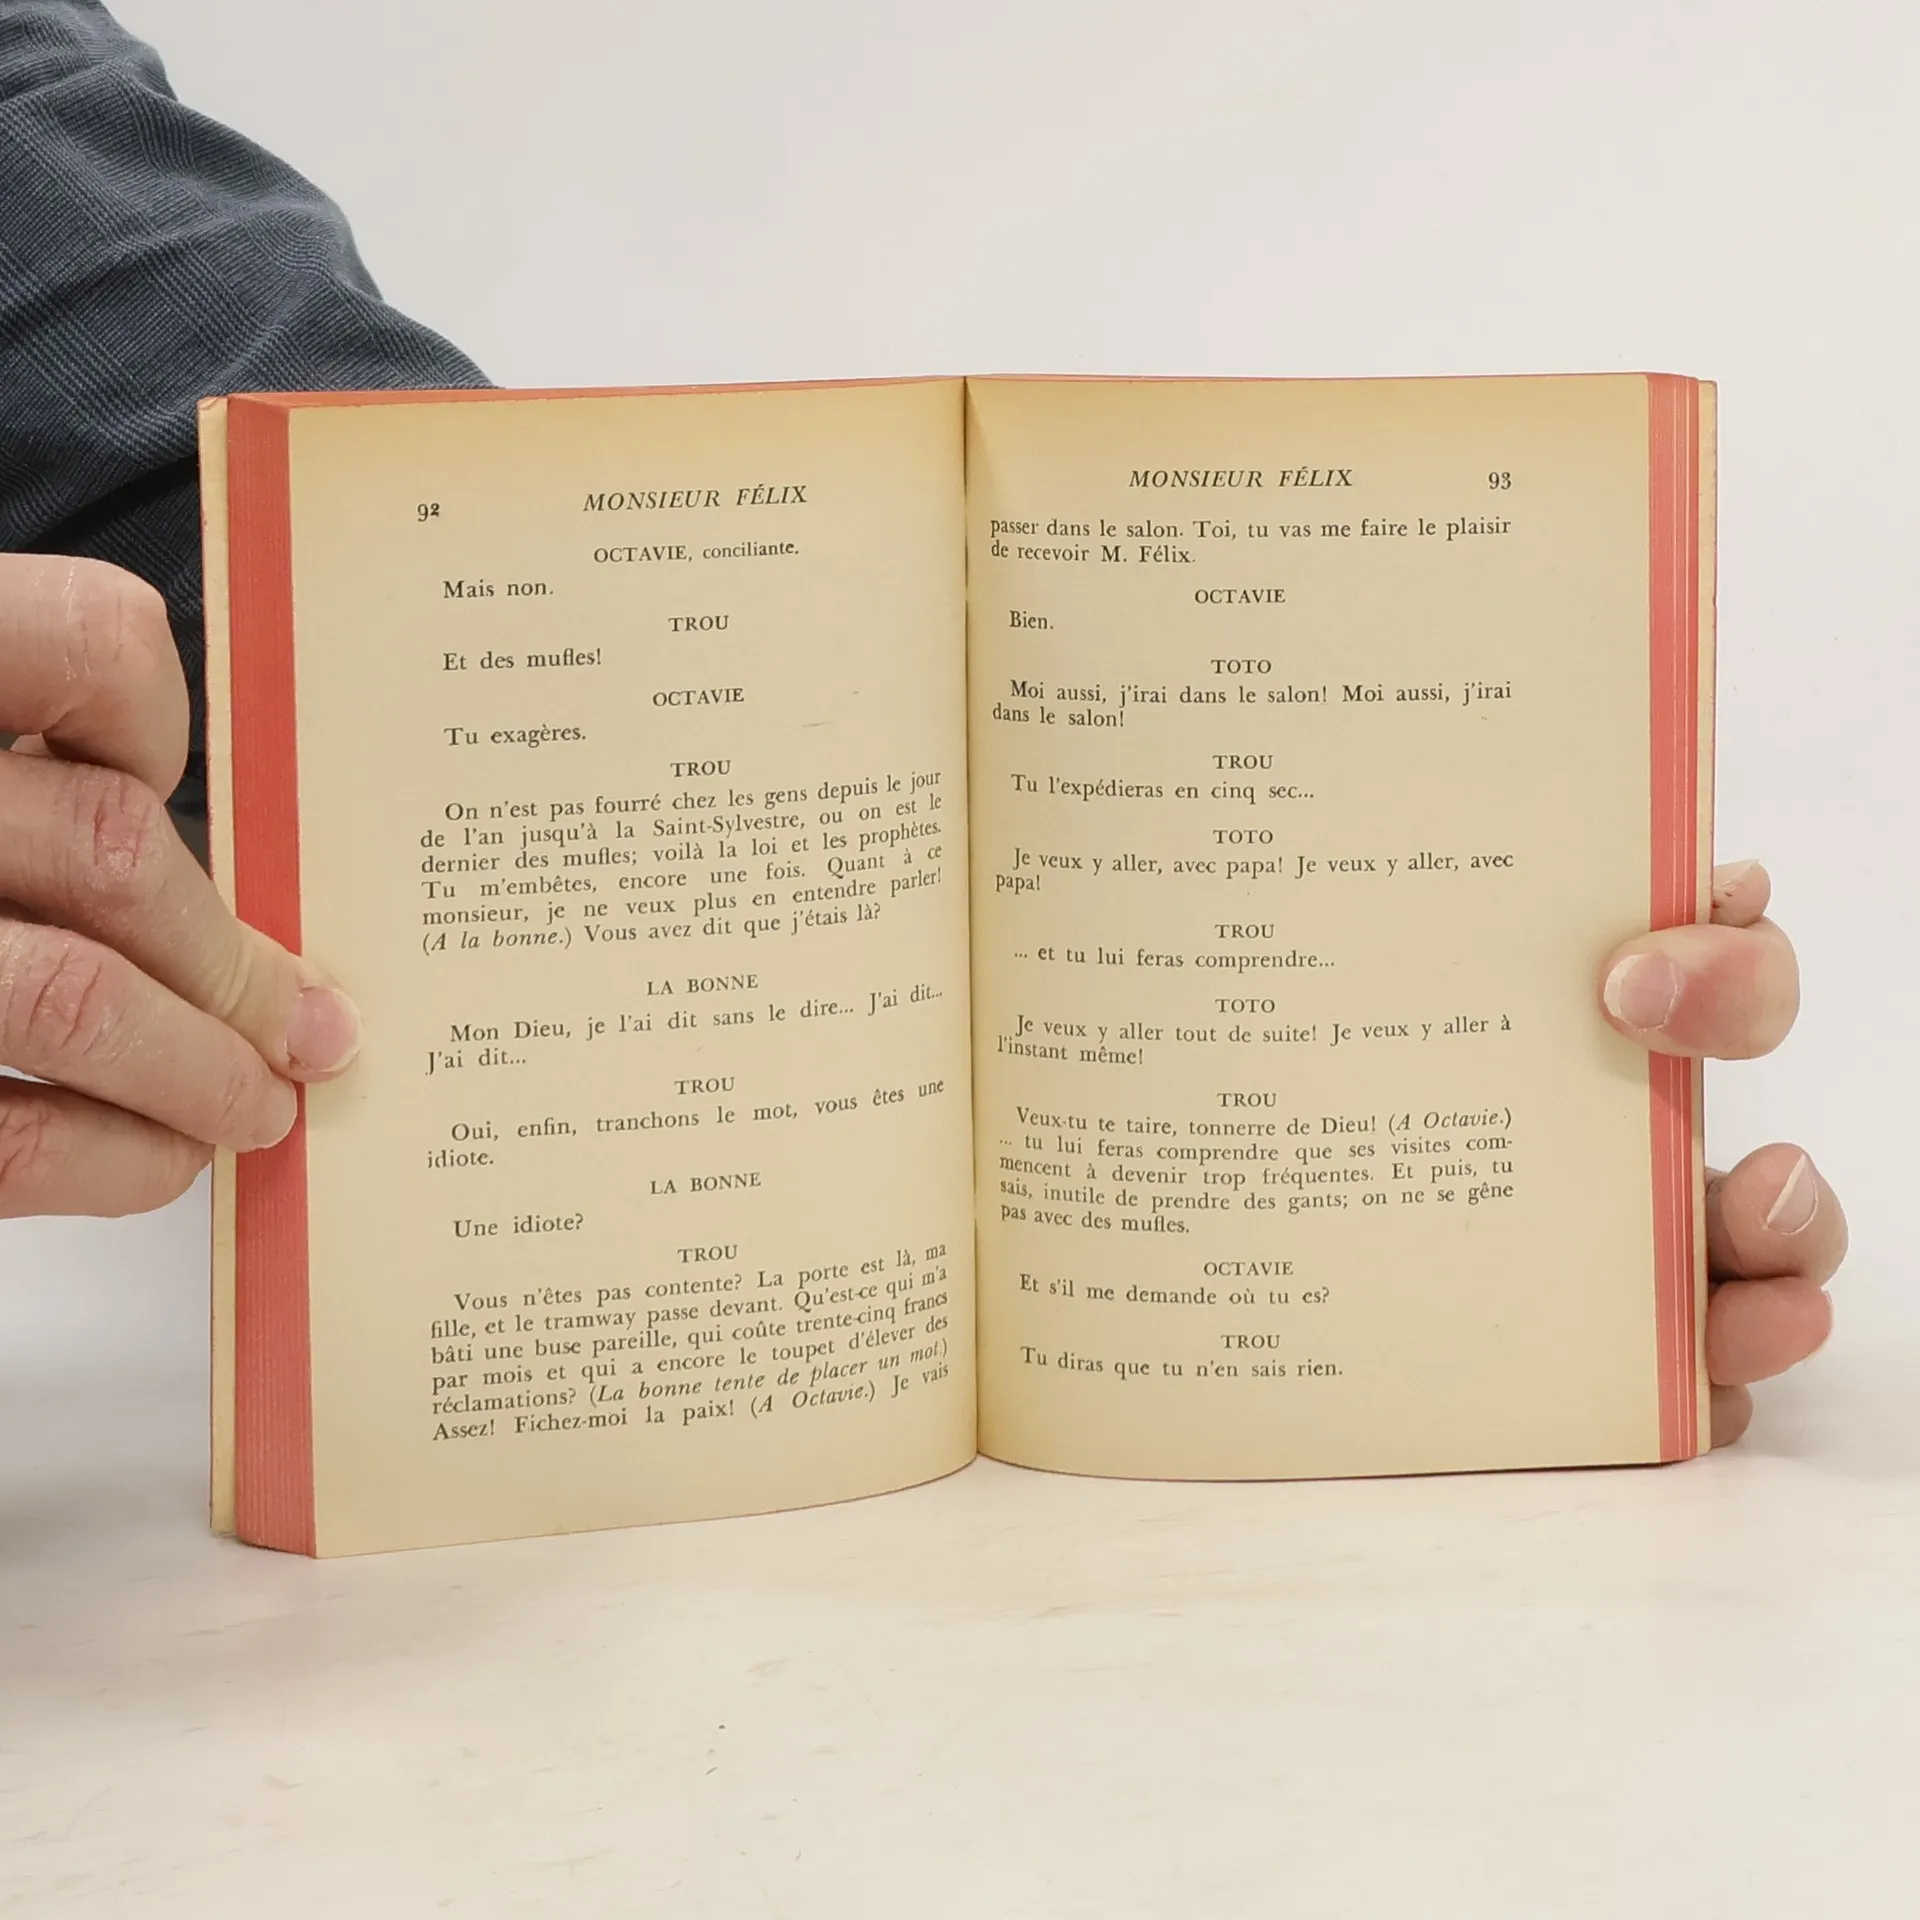 92 MONSIEUR FÉLIX
OCTAVIE, conciliante.
Mais non.
TROU
Et des mufles!
OCTAVIE
Tu exagères.
TROU
On n'est pas fourré chez les gens depuis le jour
de l'an jusqu'à la Saint-Sylvestre, ou on est le
dernier des mufles; voilà la loi et les prophètes.
Tu m'embêtes, encore une fois. Quant à ce
monsieur, je ne veux plus en entendre parler!
(A la bonne.) Vous avez dit que j'étais là?
LA BONNE
Mon Dieu, je l'ai dit sans le dire... J'ai dit...
J'ai dit...
TROU
Oui, enfin, tranchons le mot, vous êtes une
idiote.
LA BONNE
Une idiote?
TROU
Vous n'êtes pas contente? La porte est là, ma
fille, et le tramway passe devant. Qu'est-ce qui m'a
bâti une buse pareille, qui coûte trente-cinq francs
par mois et qui a encore le toupet d'élever des
réclamations? (La bonne tente de placer un mot.)
Assez! Fichez-moi la paix! (A Octavie.) Je vais
MONSIEUR FÉLIX 93
passer dans le salon. Toi, tu vas me faire le plaisir
de recevoir M. Félix.
OCTAVIE
Bien.
TOTO
Moi aussi, j'irai dans le salon! Moi aussi, j'irai
dans le salon!
TROU
Tu l'expédieras en cinq sec...
TOTO
Je veux y aller, avec papa! Je veux y aller, avec
papa!
TROU
... et tu lui feras comprendre...
TOTO
Je veux y aller tout de suite! Je veux y aller à
l'instant même!
TROU
Veux-tu te taire, tonnerre de Dieu! (A Octavie.)
... tu lui feras comprendre que ses visites com-
mencent à devenir trop fréquentes. Et puis, tu
sais, inutile de prendre des gants; on ne se gêne
pas avec des mufles.
OCTAVIE
Et s'il me demande où tu es?
TROU
Tu diras que tu n'en sais rien.